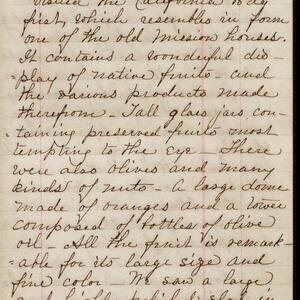 visited the California Bldg
first, which resembles in form
one of the old mission houses.
It contains a wonderful dis-
play of native fruits - and
the various products made
therefrom. Tall glass jars, con-
taining preserved fruits most
tempting to the eye - There
were also olives and many
kinds of nuts - A large dome
made of oranges and a tower
composed of bottles of olive
oil - All the fruit is remark-
able for its large size and
fine color - We saw a large
and highly polished